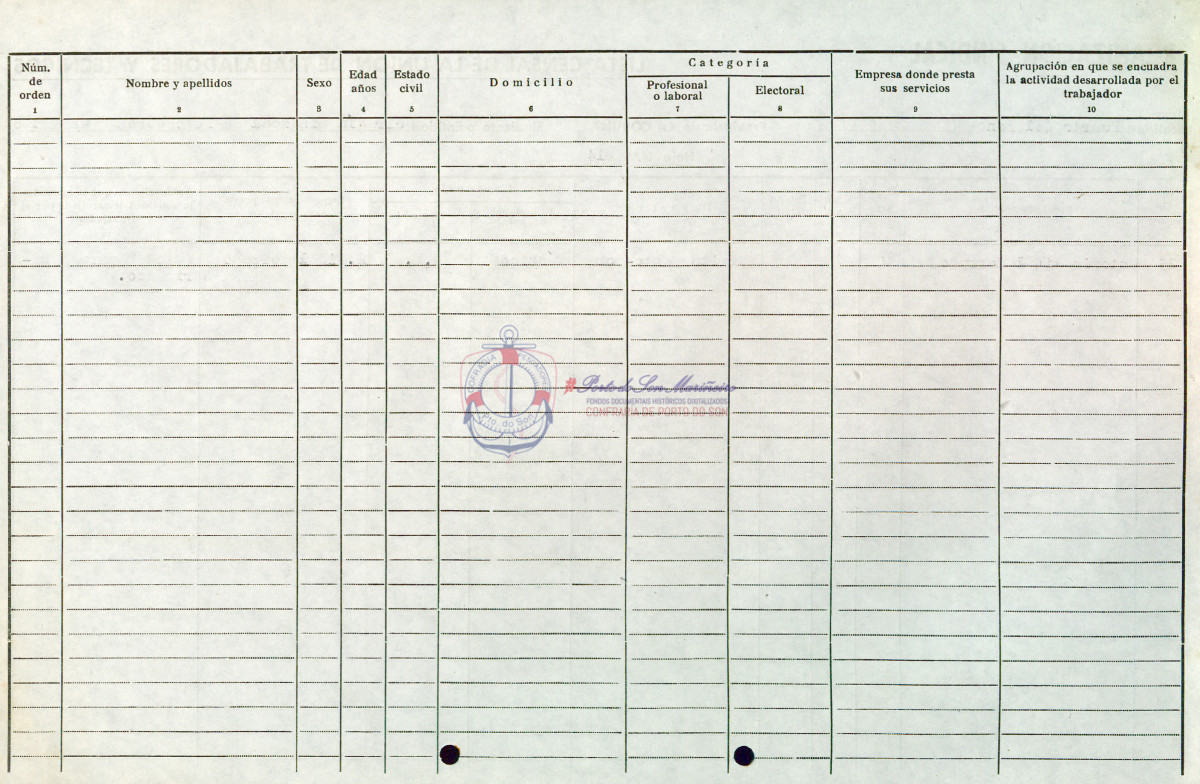 Núm.
de
orden
1
Nombre y apellidos
2
Sexo
3
Edad
años
4
Estado
civil
5
Domicilio
6
Categoría
Profesional
o laboral
7
Electoral
8
Empresa donde presta
sus servicios
9
Agrupación en que se encuadra
la actividad desarrollada por el
trabajador
10
COFRADÍA PESCADORES
Pto. do Son
# Porto do Son Mariñeiro
FONDOS DOCUMENTAIS HISTÓRICOS DIXITALIZADOS
CONFRARÍA DE PORTO DO SON